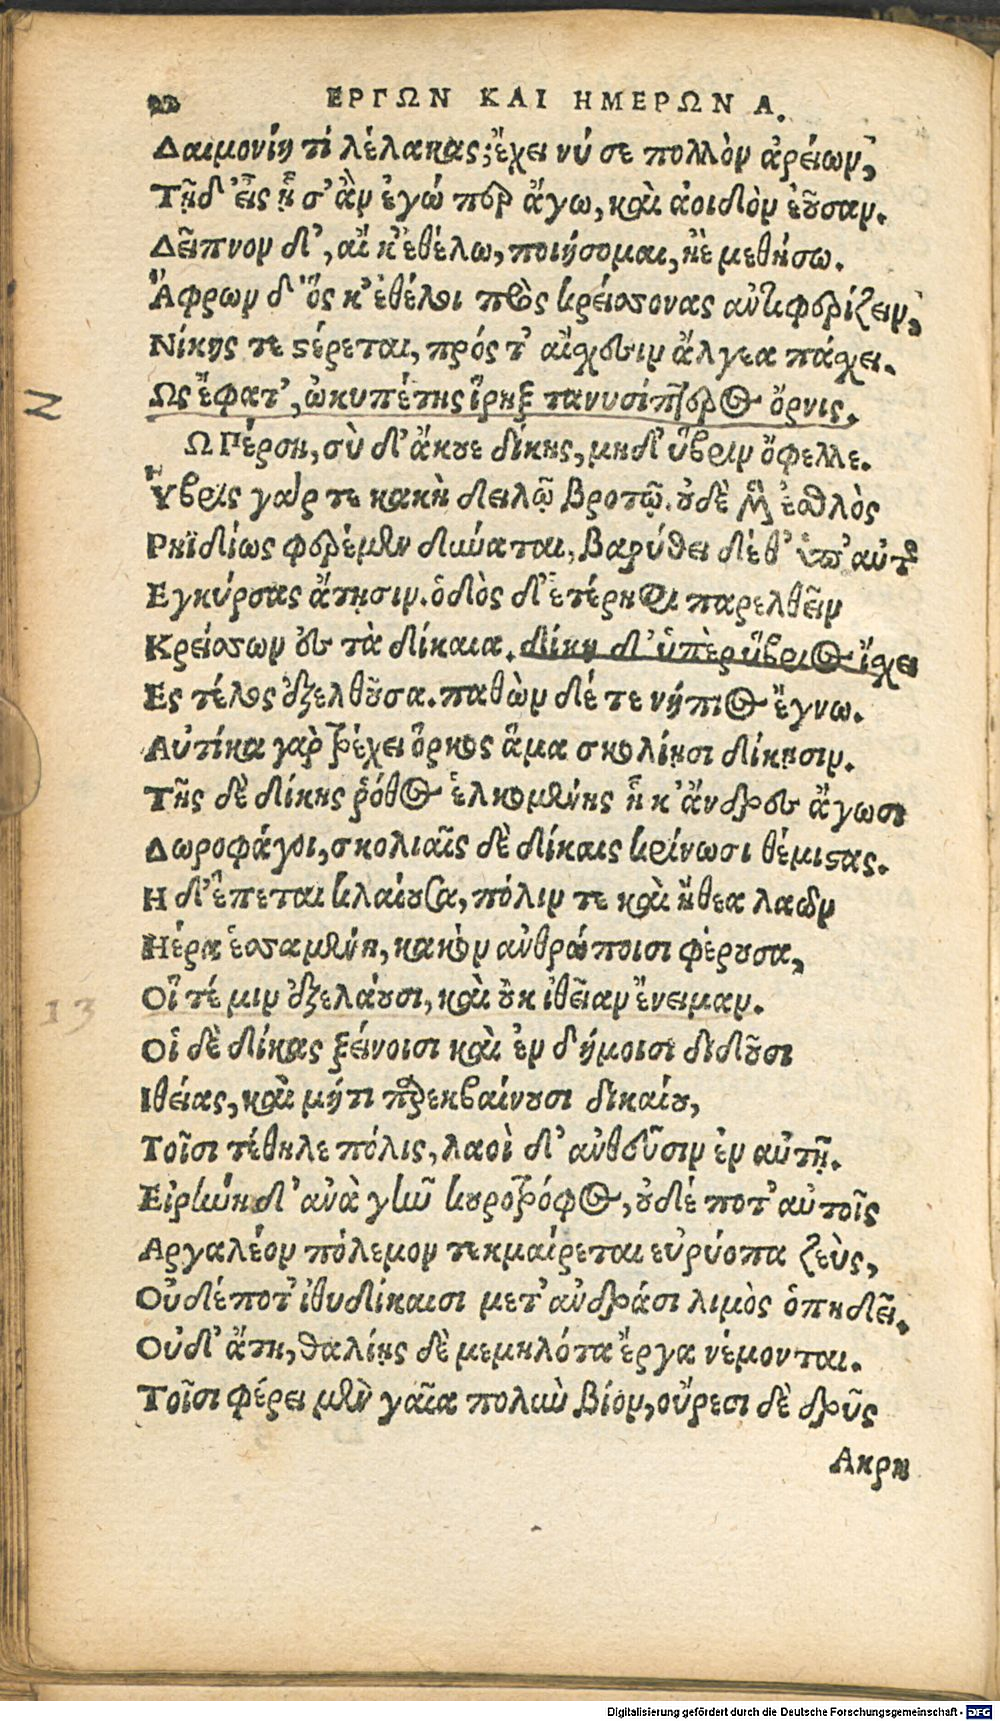 22 ΕΡΓΩΝ ΚΑΙ ΗΜΕΡΩΝ Α.
Δαιμονίη τί λέλακας; ἔχει νύ σε πολλὸν ἀρείων,
Τῇδ' εἶς ᾗ σ' ἂν ἐγώ περ ἄγω, καὶ ἀοιδὸν ἐοῦσαν.
Δεῖπνον δ', αἴ κ' ἐθέλω, ποιήσομαι, ἠὲ μεθήσω.
Ἄφρων δ' ὅς κ' ἐθέλοι πρὸς κρείσσονας ἀντιφερίζειν,
Νίκης τε στέρεται, πρός τ' αἴσχεσιν ἄλγεα πάσχει.
Ως ἔφατ', ὠκυπέτης ἴρηξ τανυσίπτερος ὄρνις.
Ω Πέρση, σὺ δ' ἄκουε δίκης, μηδ' ὕβριν ὄφελλε.
Ὕβρις γάρ τε κακὴ δειλῷ βροτῷ. οὐδὲ μὲν ἐσθλὸς
Ρηϊδίως φερέμεν δύναται, βαρύθει δέ θ' ὑπ' αὐτῆς
Εγκύρσας ἄτῃσιν. ὁδὸς δ' ἑτέρηφι παρελθεῖν
Κρείσσων ἐς τὰ δίκαια. δίκη δ' ὑπὲρ ὕβριος ἴσχει
Ες τέλος ἐξελθοῦσα. παθὼν δέ τε νήπιος ἔγνω.
Αὐτίκα γὰρ τρέχει ὅρκος ἅμα σκολίῃσι δίκῃσιν.
Τῆς δὲ δίκης ῥόθος ἑλκομένης ᾗ κ' ἄνδρες ἄγωσι
Δωροφάγοι, σκολιαῖς δὲ δίκαις κρίνωσι θέμιστας.
Η δ' ἕπεται κλαίουσα, πόλιν τε καὶ ἤθεα λαῶν
Ηέρα ἑσσαμένη, κακὸν ἀνθρώποισι φέρουσα,
Οἵ τέ μιν ἐξελάουσι, καὶ οὐκ ἰθεῖαν ἔνειμαν.
Οἱ δὲ δίκας ξείνοισι καὶ ἐν δήμοισι διδοῦσι
Ιθείας, καὶ μήτι παρεκβαίνουσι δικαίου,
Τοῖσι τέθηλε πόλις, λαοὶ δ' ἀνθεῦσιν ἐν αὐτῇ.
Εἰρήνη δ' ἀνὰ γῆν κουροτρόφος, οὐδέ ποτ' αὐτοῖς
Αργαλέον πόλεμον τεκμαίρεται εὐρύοπα ζεὺς,
Οὐδέποτ' ἰθυδίκαισι μετ' ἀνδράσι λιμὸς ὀπηδεῖ.
Οὐδ' ἄτη, θαλίῃς δὲ μεμηλότα ἔργα νέμονται.
Τοῖσι φέρει μὲν γαῖα πολὺν βίον, οὔρεσι δὲ δρῦς
Ακρη
13
Digitalisierung gefördert durch die Deutsche Forschungsgemeinschaft - DFG